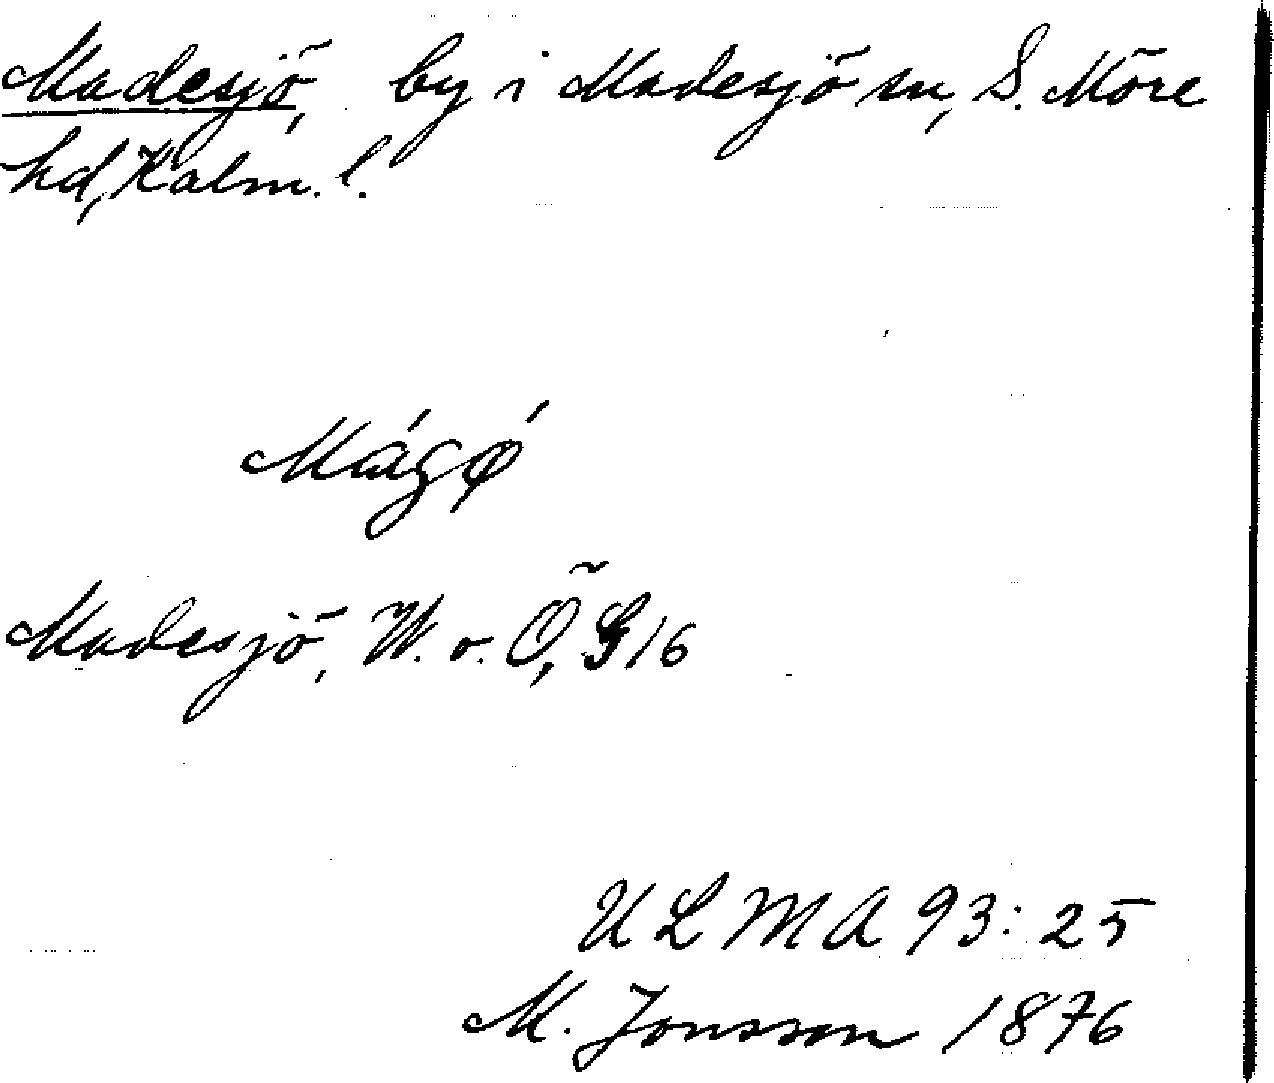 Madesjö, by i Madesjö sn, S. Möre
hd, Kalm. l.
Mágǿ
Madesjö, W. o. Ö, G 16
ULMA 93:25
M. Jonsson 1876